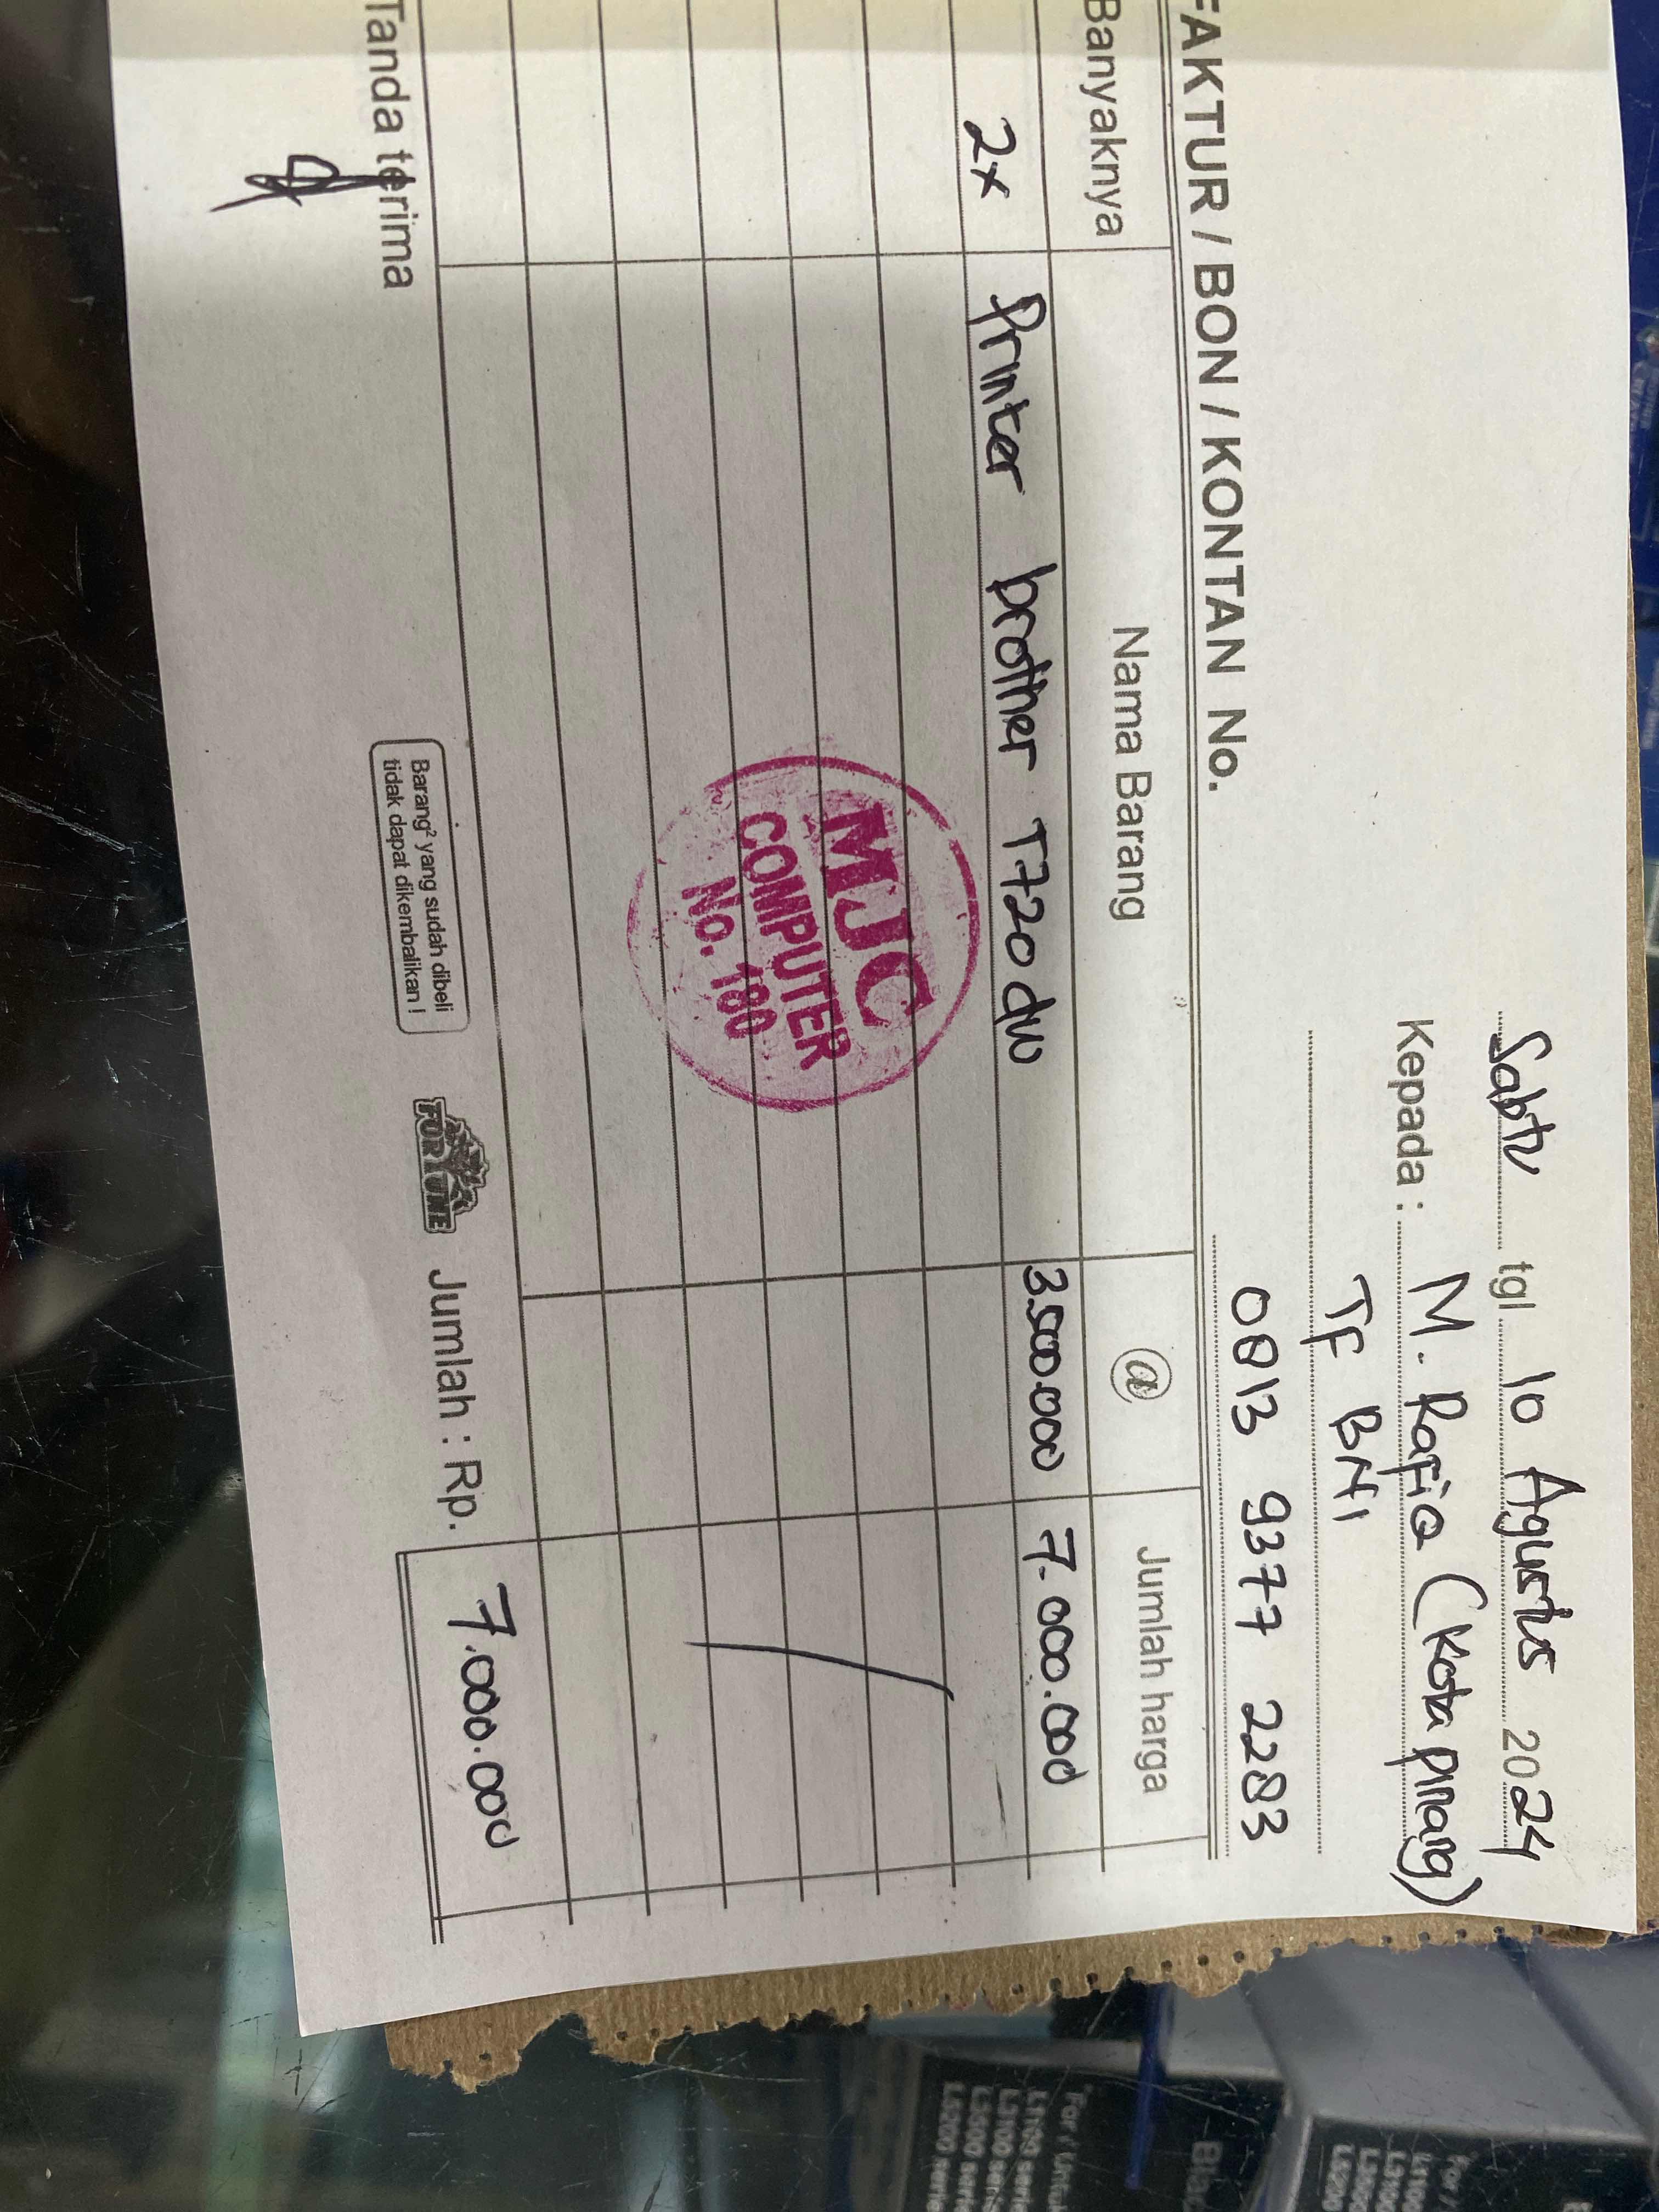 Sabtu tgl 10 Agustus 2024
Kepada : M. Rafiq (Kota pinang)
TF BNI
0813 9377 2283
FAKTUR / BON / KONTAN No.
Banyaknya Nama Barang @ Jumlah harga
2x Printer brother T720 dw 3.500.000 7.000.000
MJC
COMPUTER
No. 180
Tanda terima
Barang² yang sudah dibeli
tidak dapat dikembalikan !
FORTUNE
Jumlah : Rp. 7.000.000
For / Untuk
L1110 series
L3100 series
L3500 series
L5200 series
For /
L1110
L310
L350
L5200